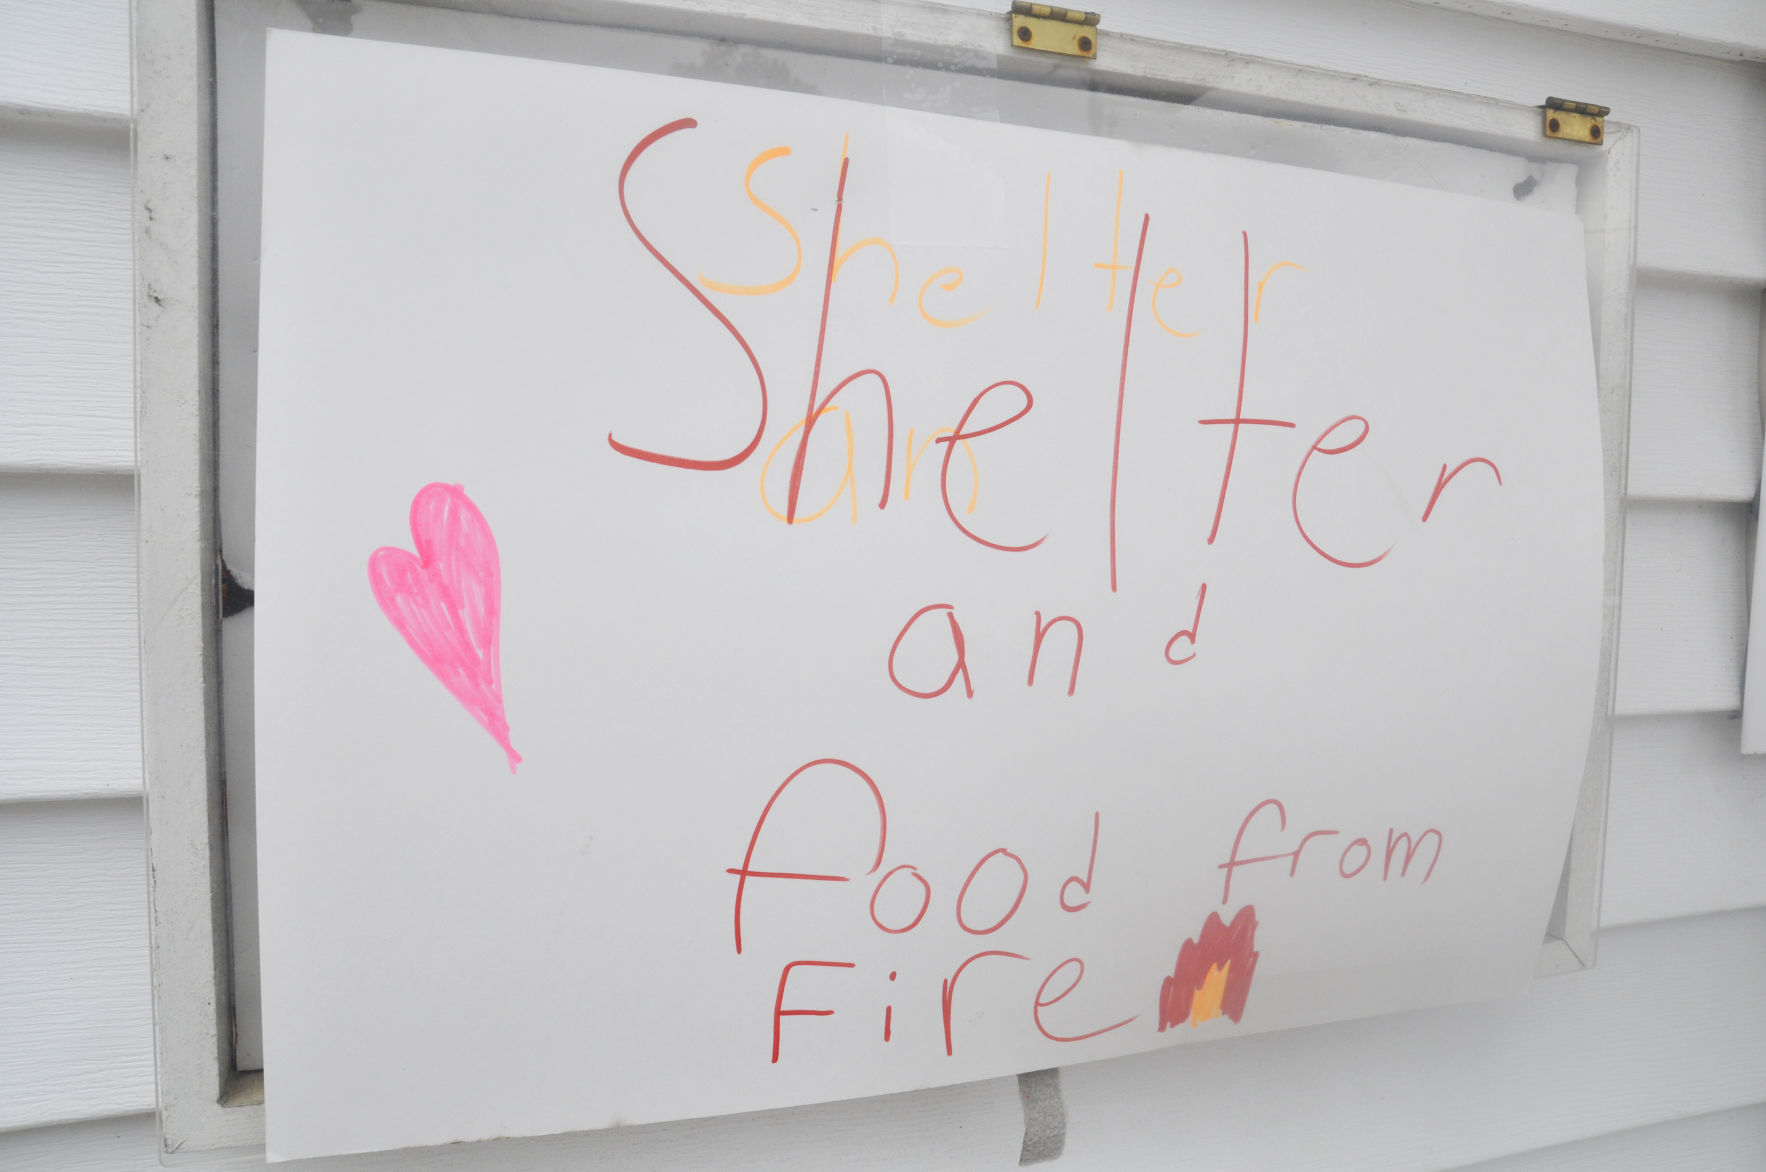 Shelter
Shelter
an
and
food from
Fire